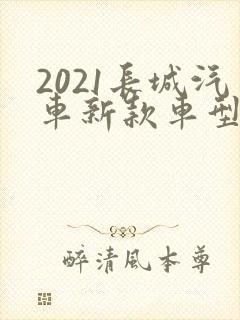 2021長城汽
車新款車型
醉清風本尊